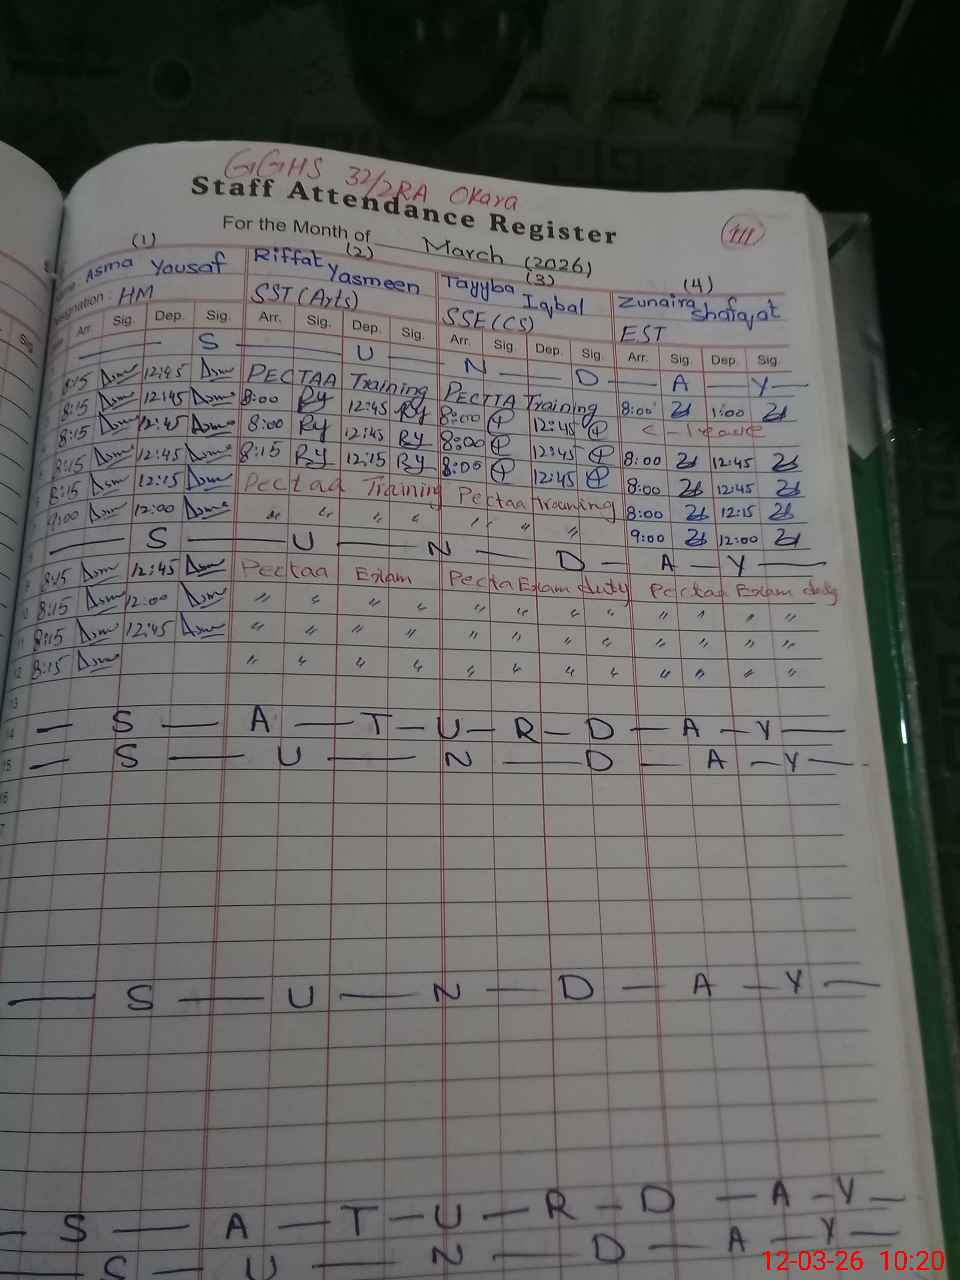 GGHS 32/2RA Okara
Staff Attendance Register
111
For the Month of March (2026)
(1) (2) (3) (4)
Asma Yousaf Riffat Yasmeen Tayyba Iqbal Zunaira Shafaqat
Designation: HM SST (Arts) SSE (CS) EST
Arr. Sig. Dep. Sig. Arr. Sig. Dep. Sig. Arr. Sig. Dep. Sig. Arr. Sig. Dep. Sig.
S U N D A Y
8:15 12:45 PECTAA Training PECTTA Training 8:00 1:00
8:15 12:45 8:00 Ry 12:45 Ry 8:00 12:45 leave
8:15 12:45 8:00 Ry 12:45 Ry 8:00 12:45 8:00 12:45
8:15 12:45 8:15 Ry 12:15 Ry 8:00 12:45 8:00 12:45
8:15 12:15 Pectaa Training Pectaa Training 8:00 12:15
9:00 12:00 " " " " " " " 9:00 12:00
S U N D A Y
9 8:15 12:45 Pectaa Exam Pecta Exam duty Pectaa Exam duty
10 8:15 12:00 " " " " " " " " " " " "
11 8:15 12:45 " " " " " " " " " " " "
12 8:15 " " " " " " " " " " " "
13
14 S A T U R D A Y
15 S U N D A Y
S U N D A Y
S A T U R D A Y
S U N D A Y
12-03-26 10:20